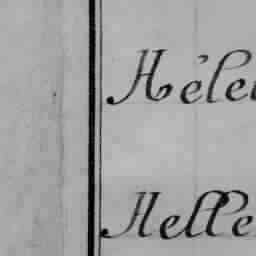 Héle
Helle